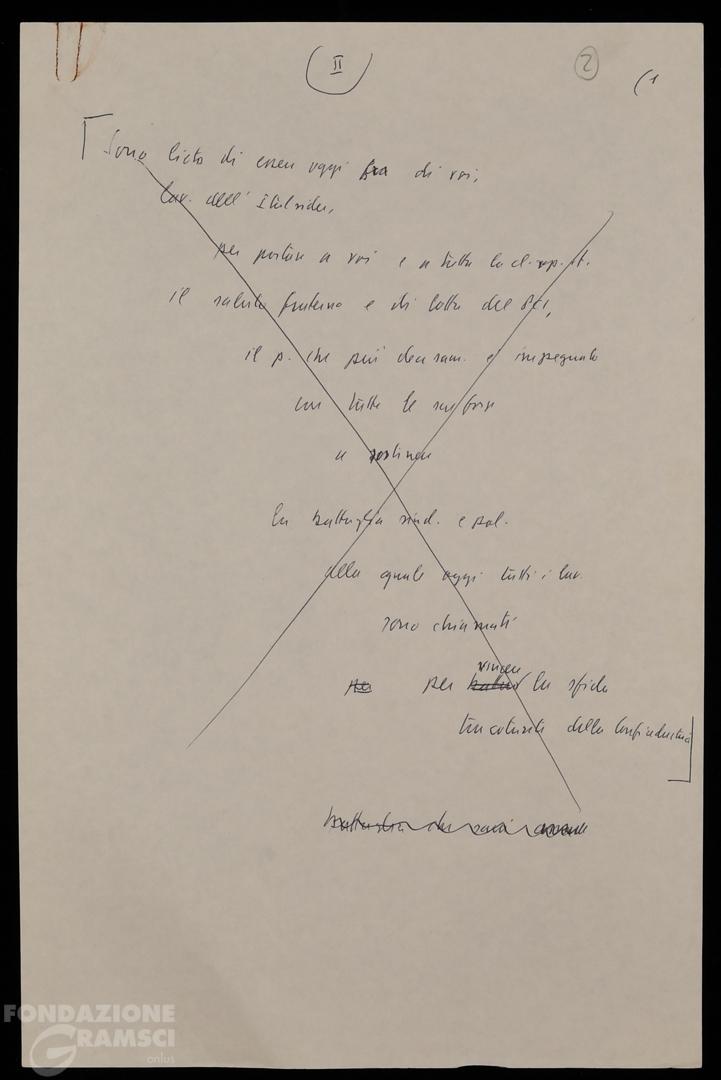 II
2
(1
Sono lieto di essere oggi fra di voi,
lav. dell'Italsider,
per portare a voi e a tutta la cl. op. it.
il saluto fraterno e di lotta del PCI,
il p. che più decisam. è impegnato
con tutte le sue forze
a sostenere
la battaglia sind. e pol.
alla quale oggi tutti i lav.
sono chiamati
vincere
per per la sfida
tracotante della Confindustria
battaglia che sarà
FONDAZIONE
GRAMSCI
onlus